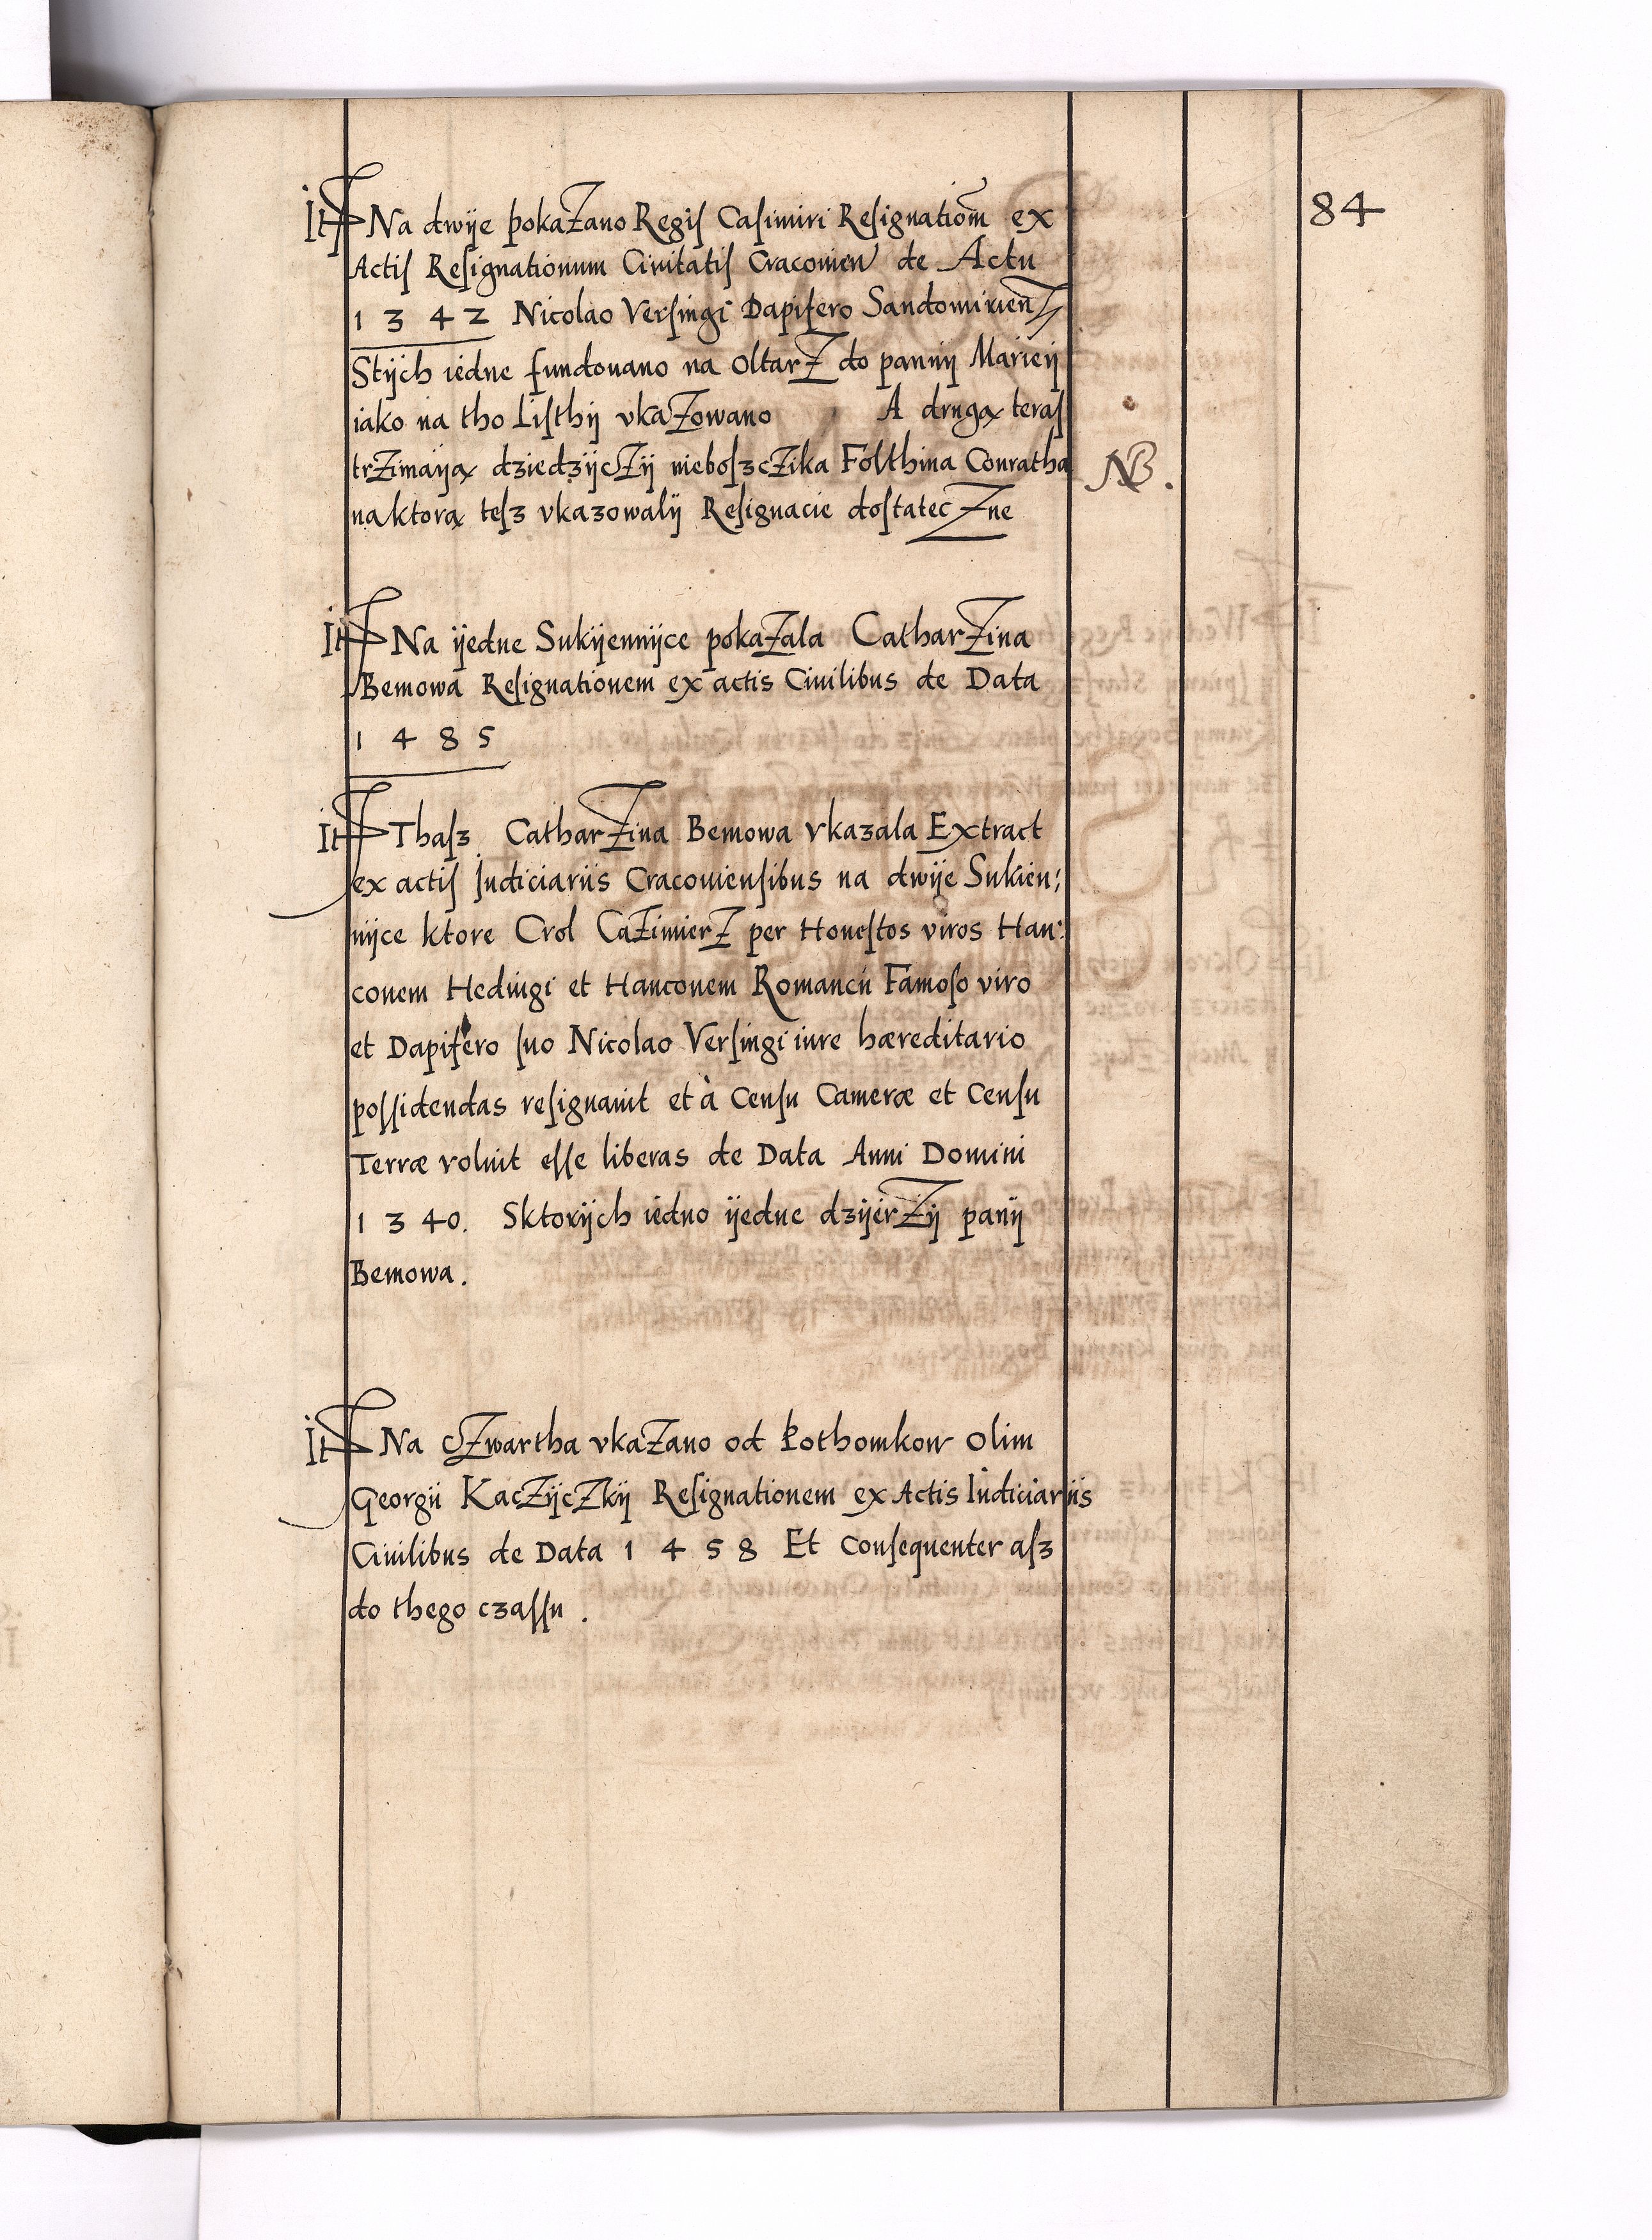 84
It Na dwÿe pokaZano Regiſ Caſimiri Reſignatiom̄ ex
Actiſ Reſignationum Ciuitatiſ Cracouien̄ de Actu
1 3 4 2 Nicolao Verſingi Dapifero Sandomirien̄
Stÿch iedne fundouano na OltarZ do pannÿ Marieÿ
iako na tho Liſthÿ vkaZowano A drugą teraſ
trZimaÿą dziedzÿcZÿ nieboſzcZika Folthina Conratha
NB.
na ktorą teſz vkazowalÿ Reſignacie doſtatecZne
It Na ÿedne Sukÿennÿce pokaZala CatharZina
Bemowa Reſignationem ex actis Ciuilibus de Data
1 4 8 5
It Thaſz CatharZina Bemowa vkazala Extract
ex actiſ Iudiciariis Cracouienſibus na dwÿe Sukien:
nÿce ktore Crol CaZimierZ per Honeſtos viros Han:
conem Hedingi et Hanconem Romancii Famoſo viro
et Dapifero ſuo Nicolao Verſingi iure hæreditario
poſſidendas reſignauit et à Cenſu Cameræ et Cenſu
Terræ voluit eſſe liberas de Data Anni Domini
1 3 4 0. Sktorÿch iedno ÿedne dzÿerZÿ panÿ
Bemowa.
It Na cZwartha vkaZano od Pothomkow Olim
Georgii KacZÿcZkÿ Reſignationem ex Actis Iudiciariis
Ciuilibus de Data 1 4 5 8 Et Conſequenter aſz
do thego czaſſu.